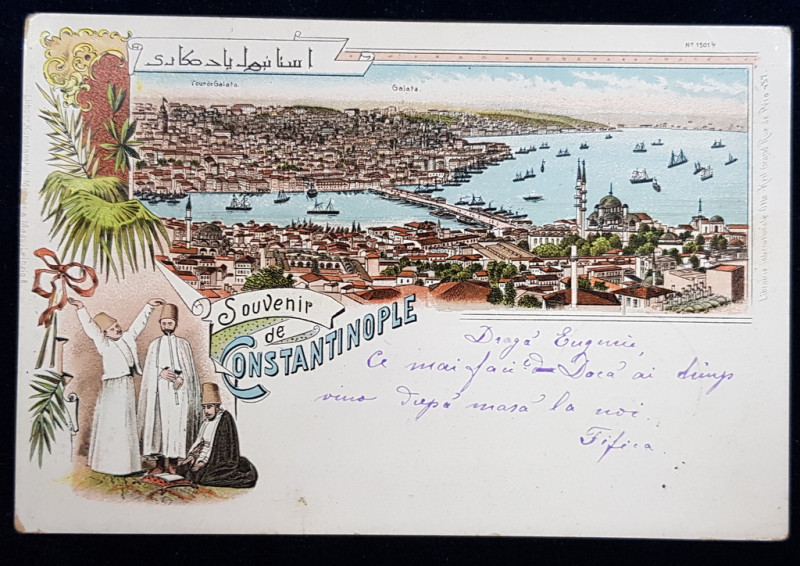 استانبول يادكارى
Nº 15014
Tour de Galata.
Galata.
Souvenir
de
CONSTANTINOPLE
Dragă Eugenie,
Ce mai faci? Dacă ai timp
vino după masă la noi.
Fifica.